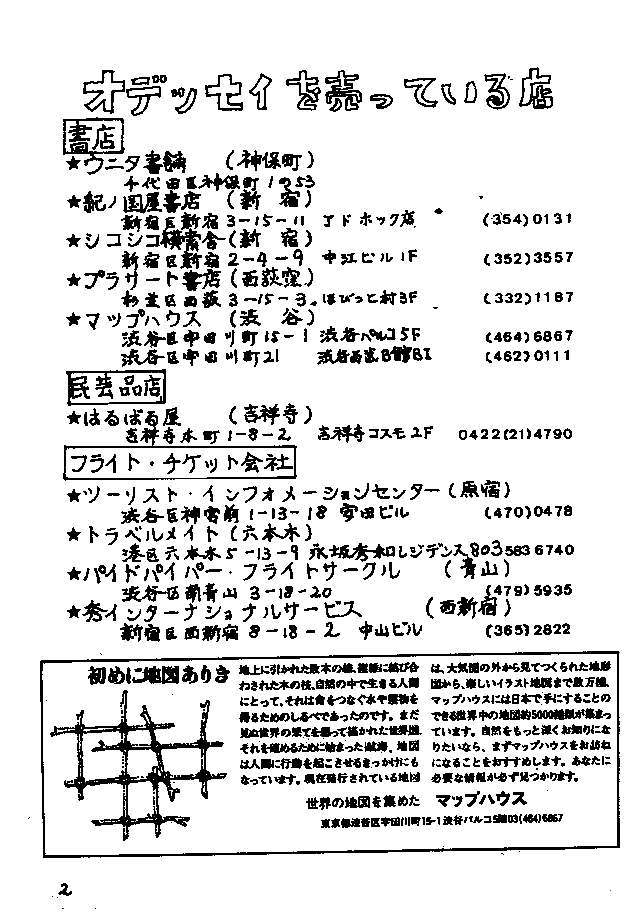 オデッセイを売っている店
書店
★ウニタ書舗 (神保町)
千代田区神保町1の53
★紀ノ国屋書店(新宿)
新宿区新宿3-15-11 アドホック店 (354)0131
★シコシコ模索舎(新宿)
新宿区新宿2-4-9 中江ビル1F (352)3557
★プラサート書店(西荻窪)
杉並区西荻3-15-3 ほびっと村3F (332)1187
★マップハウス (渋谷)
渋谷区宇田川町15-1 渋谷パルコ5F (464)6867
渋谷区宇田川町21 渋谷西武B館B1 (462)0111
民芸品店
★はるばる屋 (吉祥寺)
吉祥寺本町1-8-2 吉祥寺コスモ2F 0422(21)4790
フライト・チケット会社
★ツーリスト・インフォメーションセンター(原宿)
渋谷区神宮前1-13-18 宮田ビル (470)0478
★トラベルメイト(六本木)
港区六本木5-13-9 永坂秀和レジデンス803 583 6740
★パイドパイパー・フライトサークル (青山)
渋谷区南青山3-18-20 (479)5935
★秀インターナショナルサービス (西新宿)
新宿区西新宿8-18-2 中山ビル (365)2822
初めに地図ありき
地上に引かれた数本の線、複雑に結び合
わされた木の枝、自然の中で生きる人間
にとって、それは命をつなぐ水や獲物を
得るためのしるべであったのです。まだ
見ぬ世界の果てを願って描かれた世界図、
それを確めるために始まった航海、地図
は人間に行動を起こさせるきっかけにも
なっています。現在発行されている地図
は、大気圏の外から見てつくられた地形
図から、楽しいイラスト地図まで数万種、
マップハウスには日本で手にすることの
できる世界中の地図約5000種類が集まっ
ています。自然をもっと深くお知りにな
りたいなら、まずマップハウスをお訪ね
になることをおすすめします。あなたに
必要な情報が必ず見つかります。
世界の地図を集めた マップハウス
東京都渋谷区宇田川町15-1渋谷パルコ5階03(464)6867
2